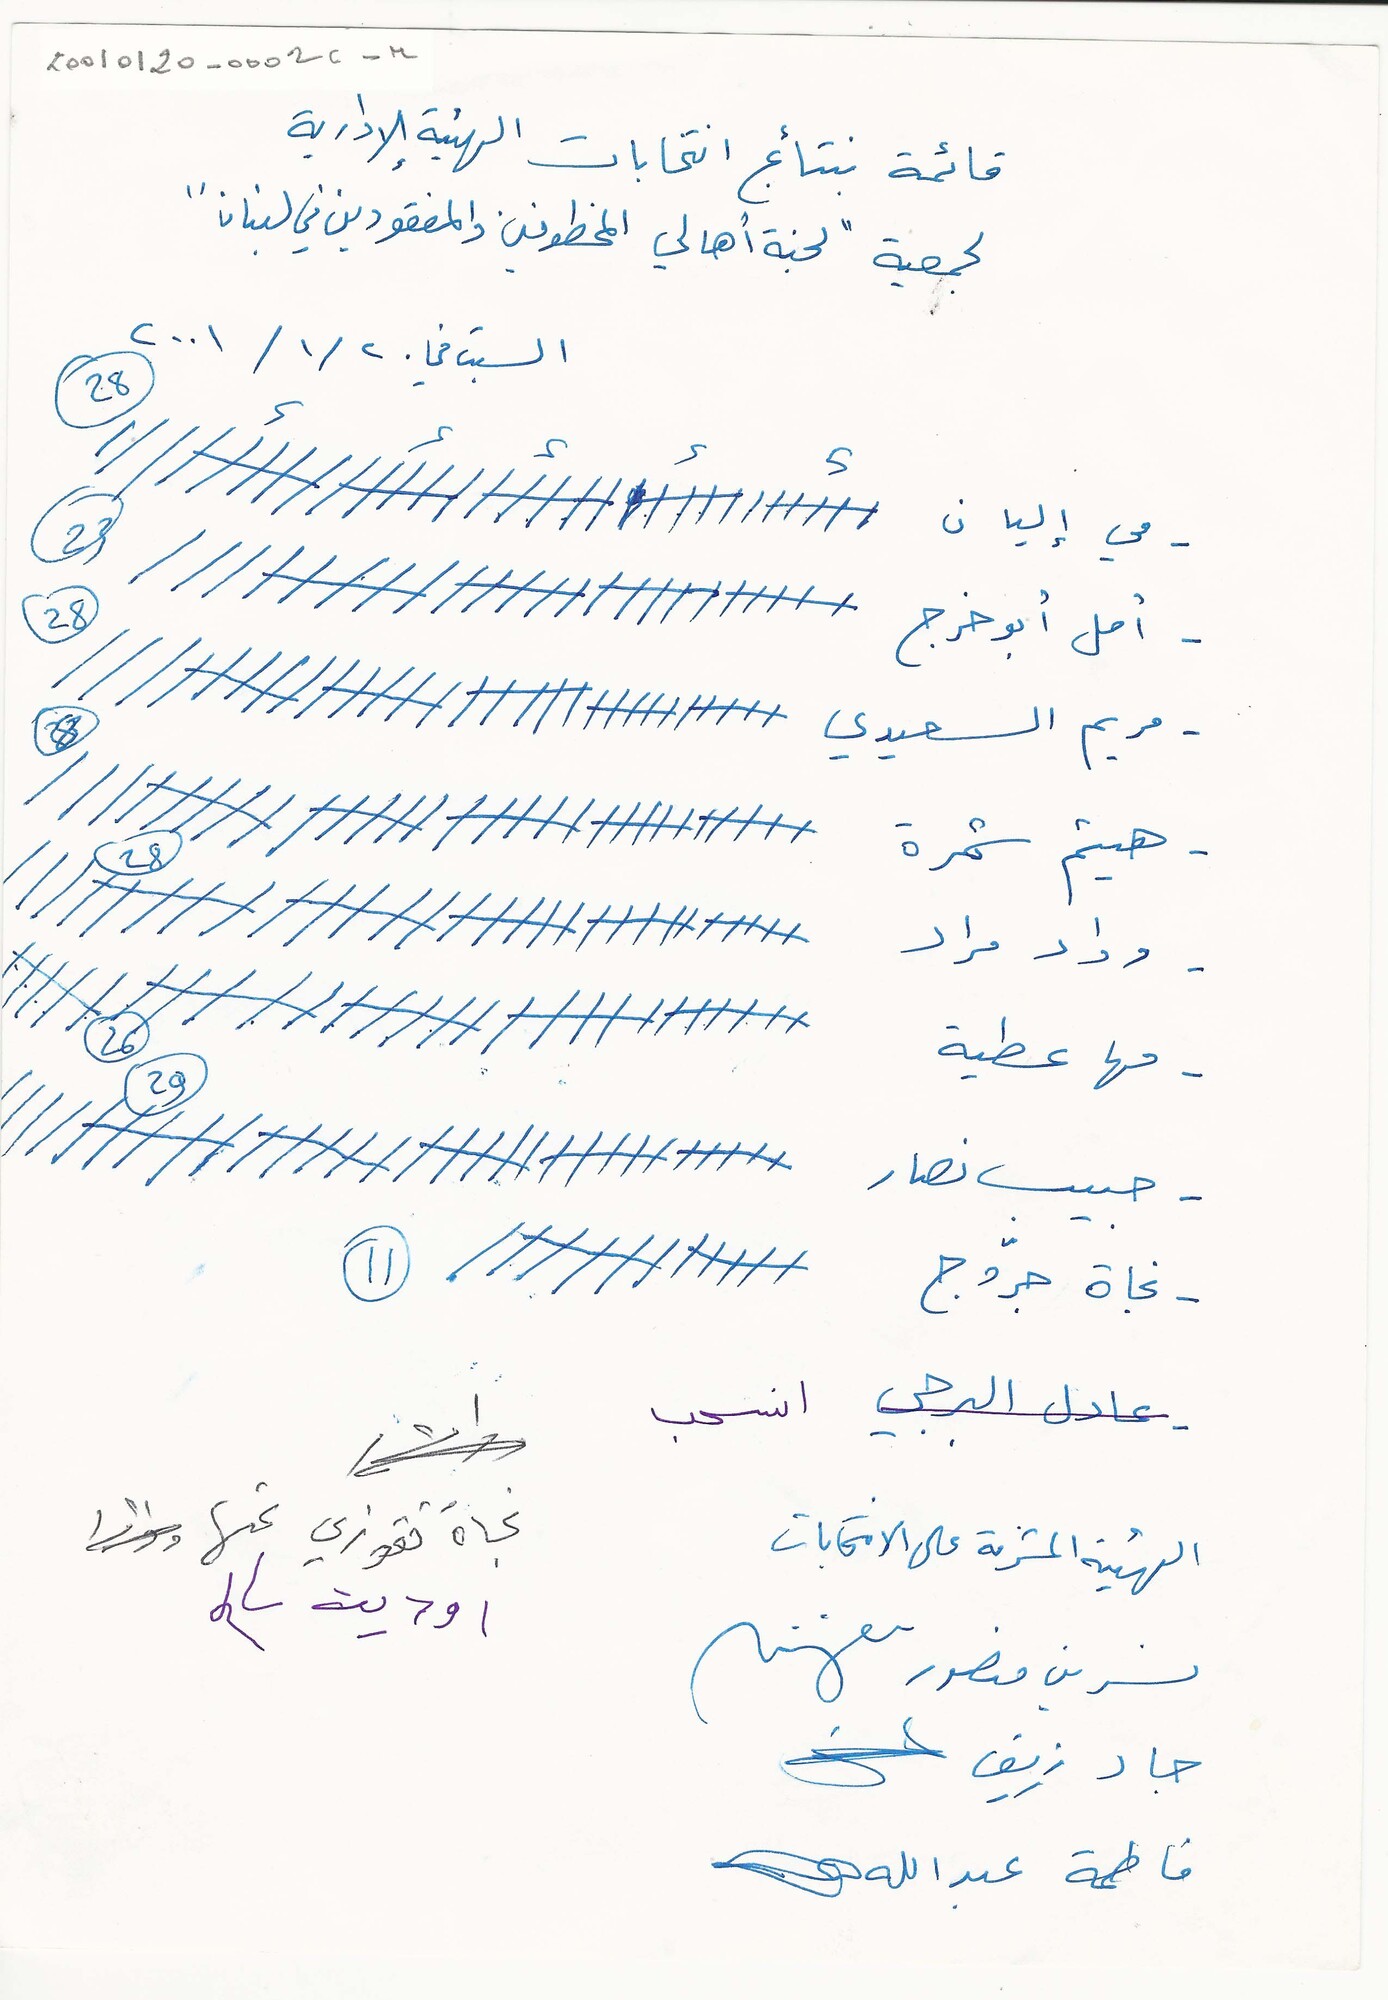 20010120-0002C-M
قائمة بنتائج انتخابات الهيئة الإدارية
لجمعية "لجنة أهالي المخطوفين والمفقودين في لبنان"
السبت في ٢٠/١/٢٠٠١
28
- مي إليان
23
- أمل أبو خرج
28
- مريم السعيدي
28
- هيثم شمرة
28
- وداد مراد
- مها عطية
26
29
- حبيب نصار
- نجاة جرّوج 11
- عادل البرجي انسحب
نجاة نقوزي عنها
اوديت
الهيئة المشرفة على الانتخابات
نسرين منصور
جاد زيف
فاطمة عبدالله